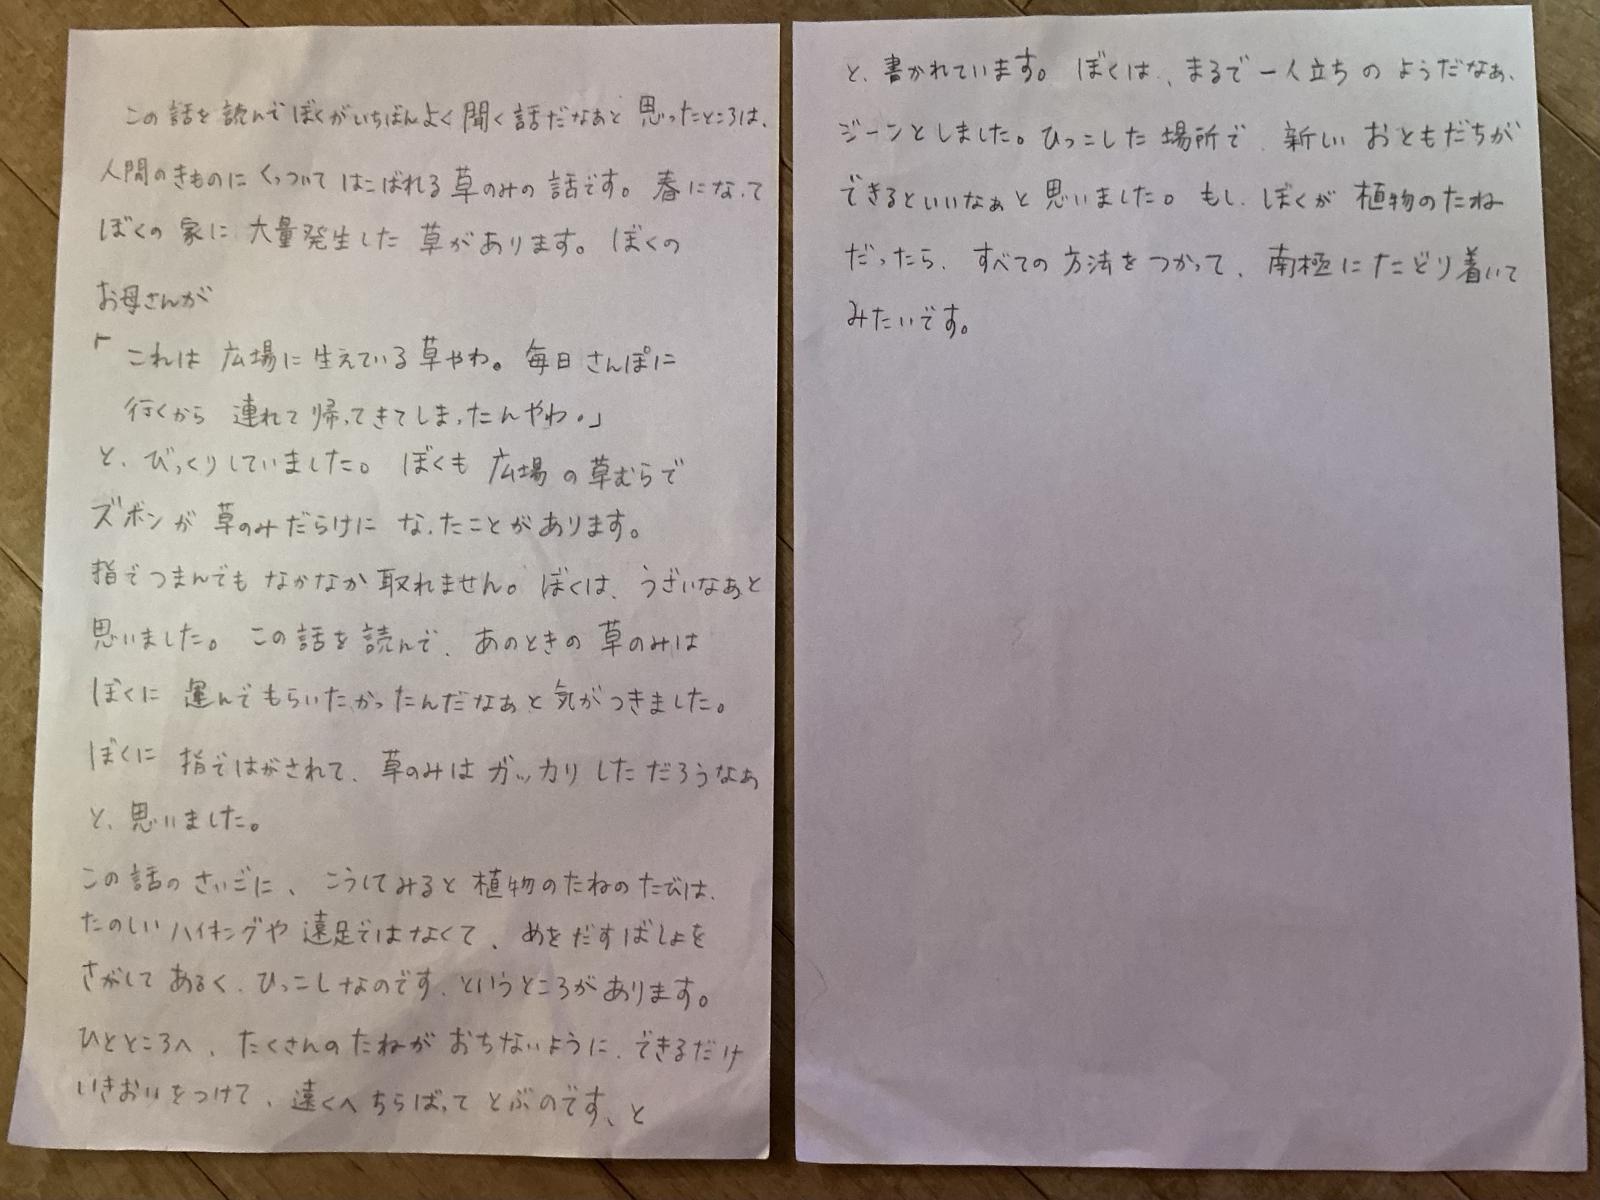 この話を読んでぼくがいちばんよく聞く話だなぁと思ったところは、
人間のきものにくっついてはこばれる草のみの話です。春になって
ぼくの家に大量発生した草があります。ぼくの
お母さんが
「これは広場に生えている草やわ。毎日さんぽに
行くから連れて帰ってきてしまったんやわ。」
と、びっくりしていました。ぼくも広場の草むらで
ズボンが草のみだらけになったことがあります。
指でつまんでもなかなか取れません。ぼくは、うざいなぁと
思いました。この話を読んで、あのときの草のみは
ぼくに運んでもらいたかったんだなぁと気がつきました。
ぼくに指ではがされて、草のみはガッカリしただろうなぁ
と、思いました。
この話のさいごに、こうしてみると植物のたねのたびは、
たのしいハイキングや遠足ではなくて、めをだすばしょを
さがしてあるく、ひっこしなのです、というところがあります。
ひとところへ、たくさんのたねがおちないように、できるだけ
いきおいをつけて、遠くへちらばってとぶのです、と
と、書かれています。ぼくは、まるで一人立ちのようだなぁ、
ジーンとしました。ひっこした場所で、新しいおともだちが
できるといいなぁと思いました。もし、ぼくが植物のたね
だったら、すべての方法をつかって、南極にたどり着いて
みたいです。